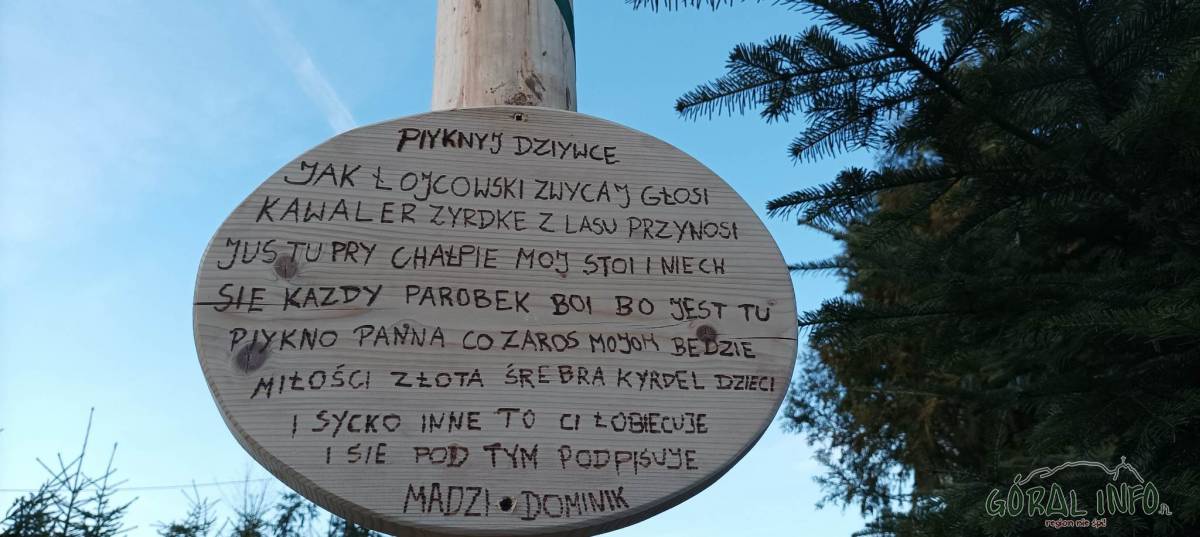 PIYKNYJ DZIYWCE
JAK ŁOJCOWSKI ZWYCAJ GŁOSI
KAWALER ZYRDKE Z LASU PRZYNOSI
JUS TU PRY CHAŁPIE MOJ STOI I NIECH
SIE KAZDY PAROBEK BOI BO JEST TU
PIYKNO PANNA CO ZAROS MOJOM BEDZIE
MIŁOŚCI ZŁOTA ŚREBRA KYRDEL DZIECI
I SYCKO INNE TO CI ŁOBIECUJE
I SIE POD TYM PODPISUJE
MADZI DOMINIK
GÓRAL INFO.PL
region nie śpi!